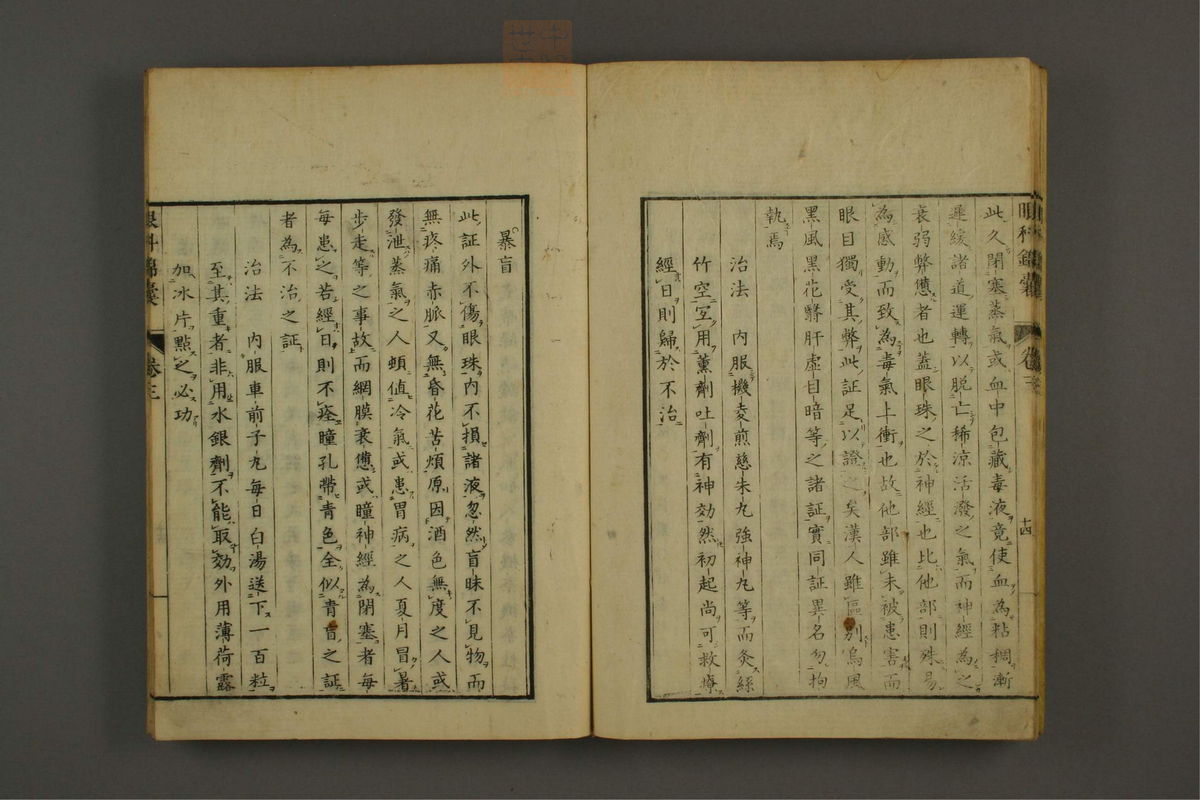 眼科錦囊 卷三 十四
此久閉塞蒸氣或血中包藏毒液竟使血為粘稠漸
遲緩諸道運轉以脱亡稀涼活潑之氣而神經為之
衰弱弊憊者也蓋眼珠之於神經也比他部則殊易
為感動而致為毒氣上衝也故他部雖未被患害而
眼目獨受其弊此証足以證之矣漢人雖區別烏風
黑風黑花翳肝虛目暗等之諸証實同証異名勿拘
執焉
治法 內服機夌煎慈朱丸強神丸等而灸絲
竹空用薰劑吐劑有神効然初起尚可救療
經日則歸於不治
暴盲
此証外不傷眼珠內不損諸液忽然盲昧不見物而
無疼痛赤脈又無昏花苦煩原因酒色無度之人或
發泄蒸氣之人頓値冷氣或患胃病之人夏月冒暑
步走等之事故而網膜衰憊或瞳神經為閉塞者每
每患之若經日則不痊瞳孔帶青色全似青盲之証
者為不治之証
治法 內服車前子丸每日白湯送下一百粒
至其重者非用水銀劑不能取効外用薄荷露
加冰片點之必功
眼科錦囊 卷三